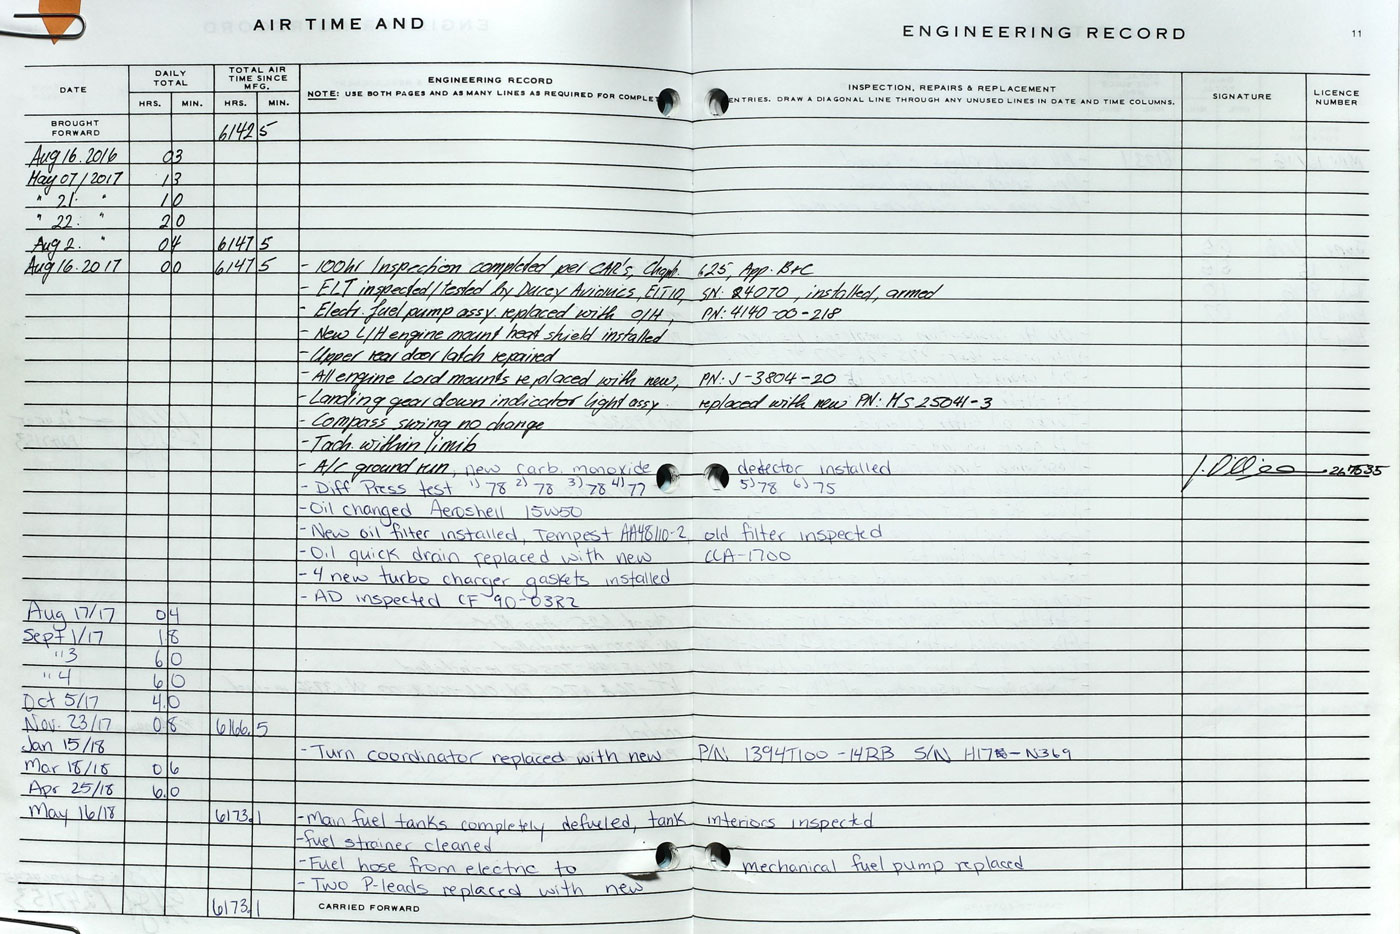 AIR TIME AND ENGINEERING RECORD 11
DATE DAILY TOTAL TOTAL AIR TIME SINCE MFG. ENGINEERING RECORD INSPECTION, REPAIRS & REPLACEMENT SIGNATURE LICENCE NUMBER
HRS. MIN. HRS. MIN. NOTE: USE BOTH PAGES AND AS MANY LINES AS REQUIRED FOR COMPLET ENTRIES. DRAW A DIAGONAL LINE THROUGH ANY UNUSED LINES IN DATE AND TIME COLUMNS.
BROUGHT FORWARD 6142 5
Aug 16. 2016 0 3
May 07/2017 1 3
" 21. " 1 0
" 22. " 2 0
Aug 2. " 0 4 6147 5
Aug 16. 2017 0 0 6147 5 - 100hr Inspection completed per CAR's, Chapt. 625, App. B+C
- ELT inspected/tested by Avionics, ELT10, SN: 84070, installed, armed
- Electr. fuel pump assy replaced with O/H PN: 4140-00-218
- New L/H engine mount heat shield installed
- Upper rear door latch repaired
- All engine Lord mounts replaced with new, PN: J-3804-20
- Landing gear down indicator light assy. replaced with new PN: MS 25041-3
- Compass swing no change
- Tach. within limits
- A/C ground run, new carb. monoxide detector installed
- Diff Press test 1) 78 2) 78 3) 78 4) 77 5) 78 6) 75
- Oil changed Aeroshell 15W50
- New oil filter installed, Tempest AA48110-2, old filter inspected
- Oil quick drain replaced with new CCA-1700
- 4 new turbo charger gaskets installed
- AD inspected CF 90-03R2
Aug 17/17 0 4
Sept 1/17 1 8
" 3 6 0
" 4 6 0
Oct 5/17 4.0
Nov. 23/17 0 8 6166.5
Jan 15/18 - Turn coordinator replaced with new P/N 1394T100-14RB S/N
Mar 18/18 0 6
Apr 25/18 6.0
May 16/18 6173.1 - Main fuel tanks completely defueled, tank interiors inspected
- fuel strainer cleaned
- Fuel hose from electric to mechanical fuel pump replaced
- Two P-leads replaced with new
6173.1 CARRIED FORWARD